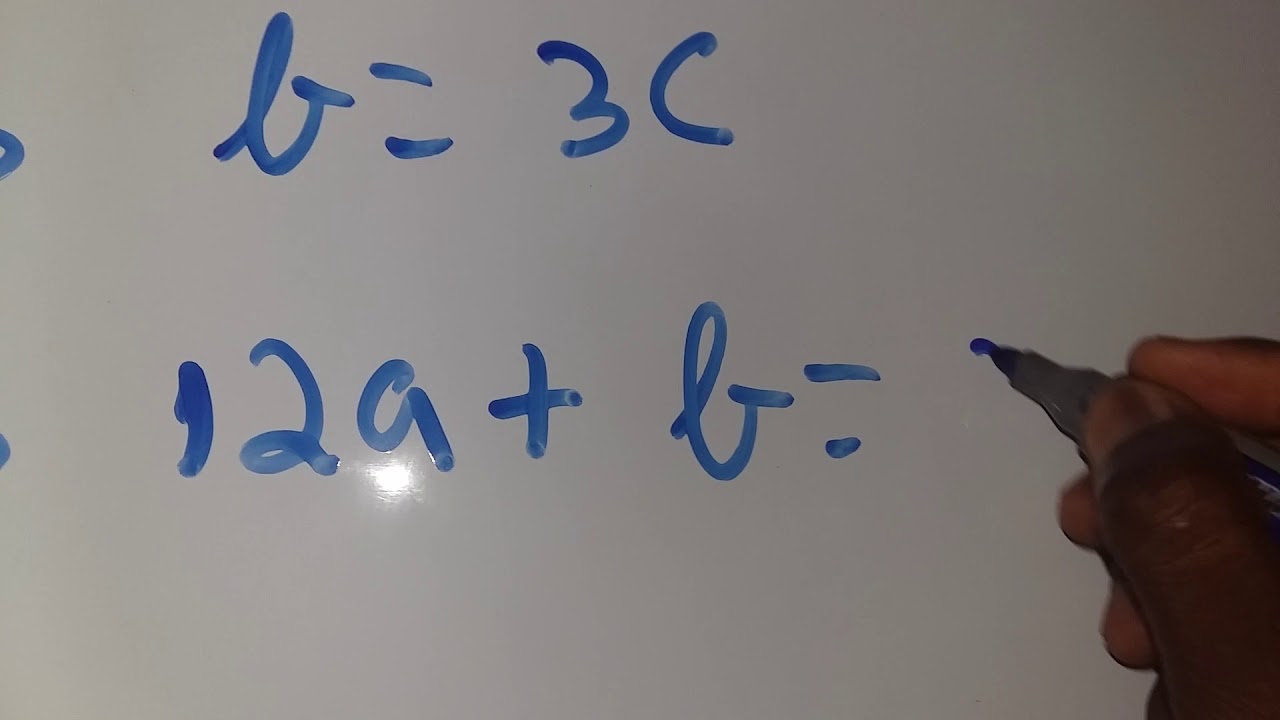 b = 3c
12a + b =